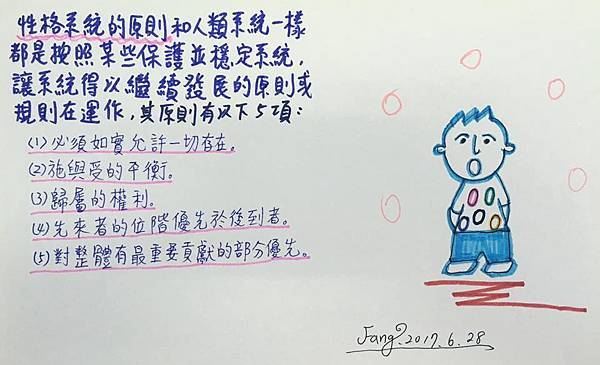 性格系統的原則和人類系統一樣
都是按照某些保護並穩定系統,
讓系統得以繼續發展的原則或
規則在運作,其原則有以下5項:
(1)必須如實允許一切存在。
(2)施與受的平衡。
(3)歸屬的權利。
(4)先來者的位階優先於後到者。
(5)對整體有最重要貢獻的部分優先。
Fang.2017.6.28